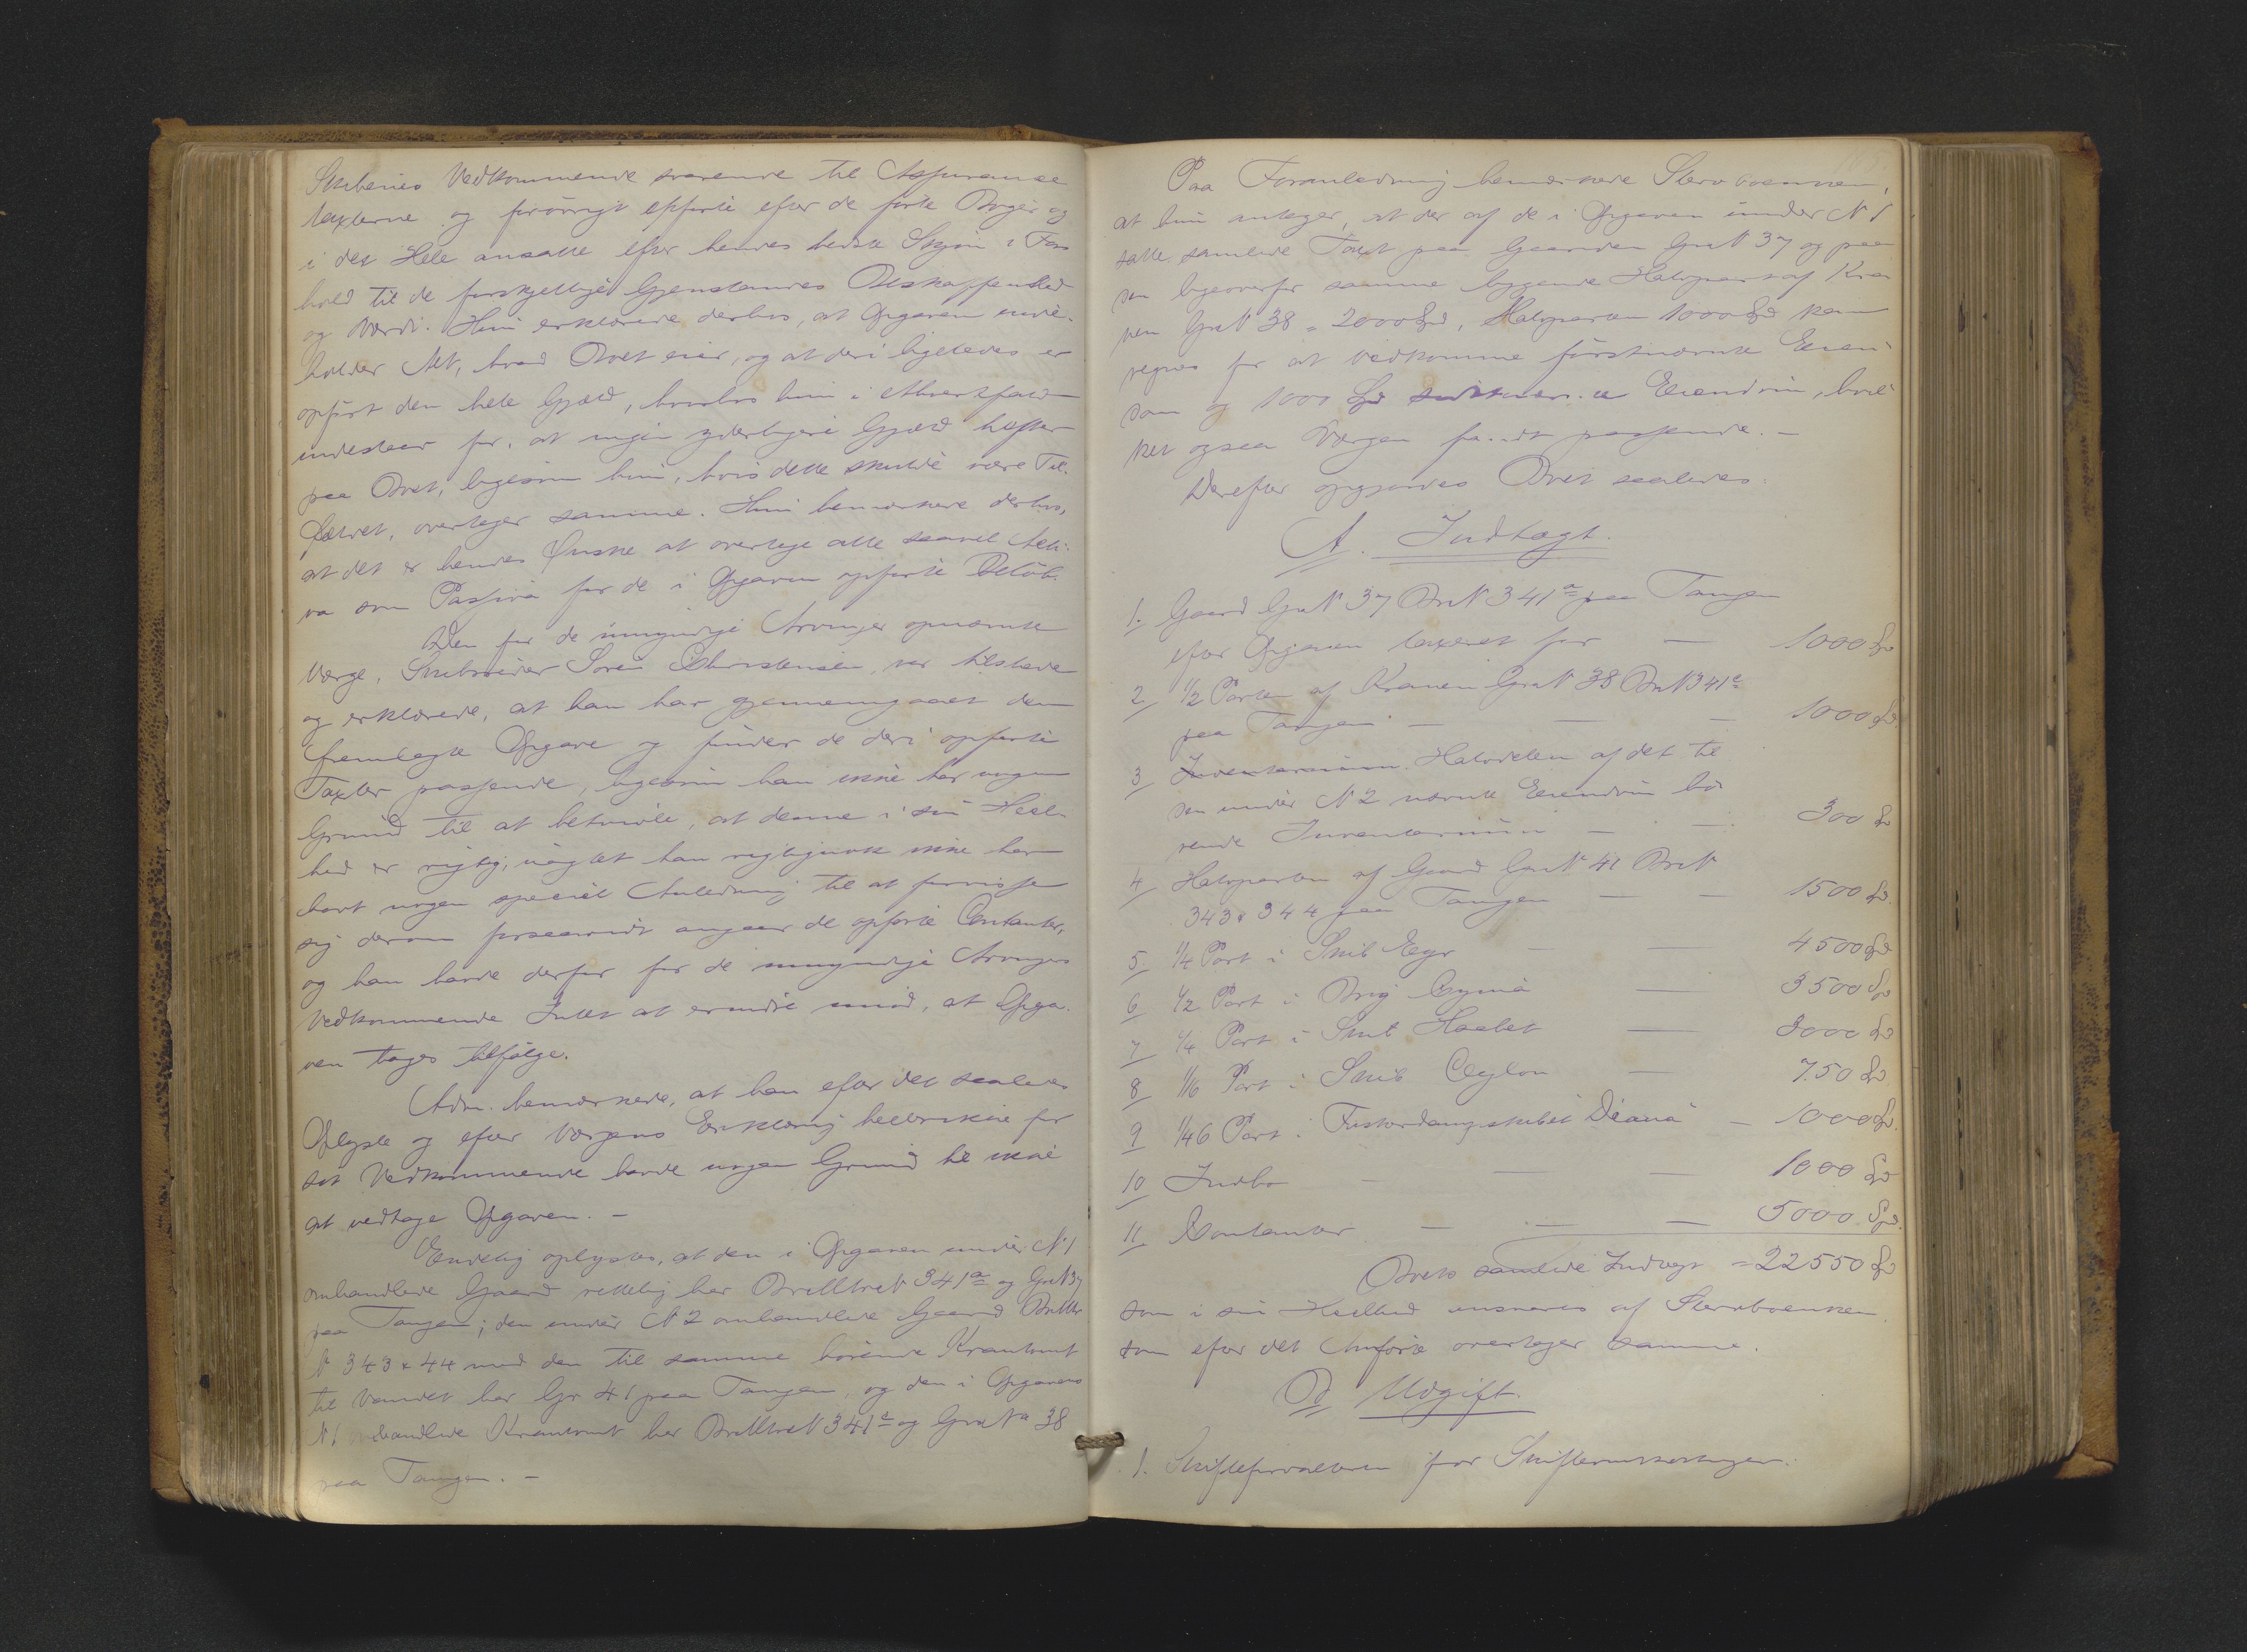 Skibenes Vedkommende svarende til Assurance
taxterne og forövrigt opförte efter de förte Böger og
i det Hele ansatte efter hendes bedste Skjön i For
hold til de forskjellige Gjenstandes Beskaffenhed
og Værdi. Hun erklærede derhos, at Opgaven inde-
holder Alt, hvad Boet eier, og at deri ligeledes er
opfört den hele Gjæld, hvorhos hun i ethvert fald
indestaar for, at ingen yderligere Gjæld hefter
paa Boet, ligesom hun, hvis dette skulde være Til-
fældet, overtager samme. Hun bemærkede derhos,
at det er hendes Ønske at overtage alle saavel Acti-
va som Passiva for de i Opgaven opförte Belöb.
Den for de umyndige Arvinger opnævnte
Værge, Skibsreder Sören Christensen, var tilstede
og erklærede, at han har gjennemgaaet den
fremlagte Opgave og finder de deri opförte
Taxter passende, ligesom han ikke har nogen
Grund til at betvivle, at denne i sin Heel-
hed er rigtig, uagtet han rigtignok ikke har
havt nogen speciel Anledning til at forvisse
sig derom forsaavidt angaar de opförte Contanter,
og han havde derfor for de umyndige Arvinges
Vedkommende Intet at erindre imod, at Opga-
ven tages tilfölge.
Adm. bemærkede, at han efter det saaledes
Oplyste og efter Værgens Erklæring hellerikke for
sit Vedkommende havde nogen Grund til ikke
at vedtage Opgaven. -
Endelig oplystes, at den i Opgaven under N 1
omhandlede Gaard rettelig har Br. Mtr N 341 a og Gr N 37
paa Tangen; den under N 2 omhandlede Gaard Br Mtr
N 343 & 44 med den til samme hörende Krantomt
til Vandet har Gr 41 paa Tangen, og den i Opgavens
N 1 omhandlede Krantomt har Br Mtr N 341 c og Gr N 38
paa Tangen. -
Paa Foranledning bemærkede Stervboenken,
at hun antager, at der af de i Opgaven under N 1
satte samlede Taxt paa Gaarden Gr N 37 og paa
den ligeoverfor samme liggende Halvpart af Kra
nen Gr N 38 = 2000 Spd, Halvparten 1000 Spd kan
regnes for at vedkomme förstnævnte Eien-
dom og 1000 Spd sidstnævnte Eiendom, hvil-
ket ogsaa Værgen fandt passende. -
Derefter opgjordes Boet saaledes:
A. Indtægt.
1. Gaard Gr N 37 Br N 341 a paa Tangen
efter Opgaven taxeret for - 1000 Spd
2 1/2 Parten af Kranen Gr N 38 Br N 341 c
paa Tangen - - - 1000 Spd
3 Inventarium. Halvdelen af det til
den under N 2 nævnte Eiendom hö
rende Inventarium - - 300 Spd
4 Halvparten af Gaard Gr N 41 Br N
343 & 344 paa Tangen - - 1500 Spd.
5. 1/4 Part i Skib Egir - - 4500 Spd
6 1/2 Part i Brig Cyma - 3500 Spd
7 1/4 Part i Skib Haabet - 3000 Spd
8 1/16 Part i Skib Ceylon - 750 Spd
9 1/46 Part i Dampskibet Diana - 1000 Spd.
10 Indbo - - - 1000 Spd
11 Contanter - - - 5000 Spd.
Boets samlede Indtægt = 22550 Spd
som i sin Heelhed indsvares af Stervboenken
som efter det Anförte overtager samme.
B Udgift.
1. Skifteforvalteren for Skifteomkostninger.